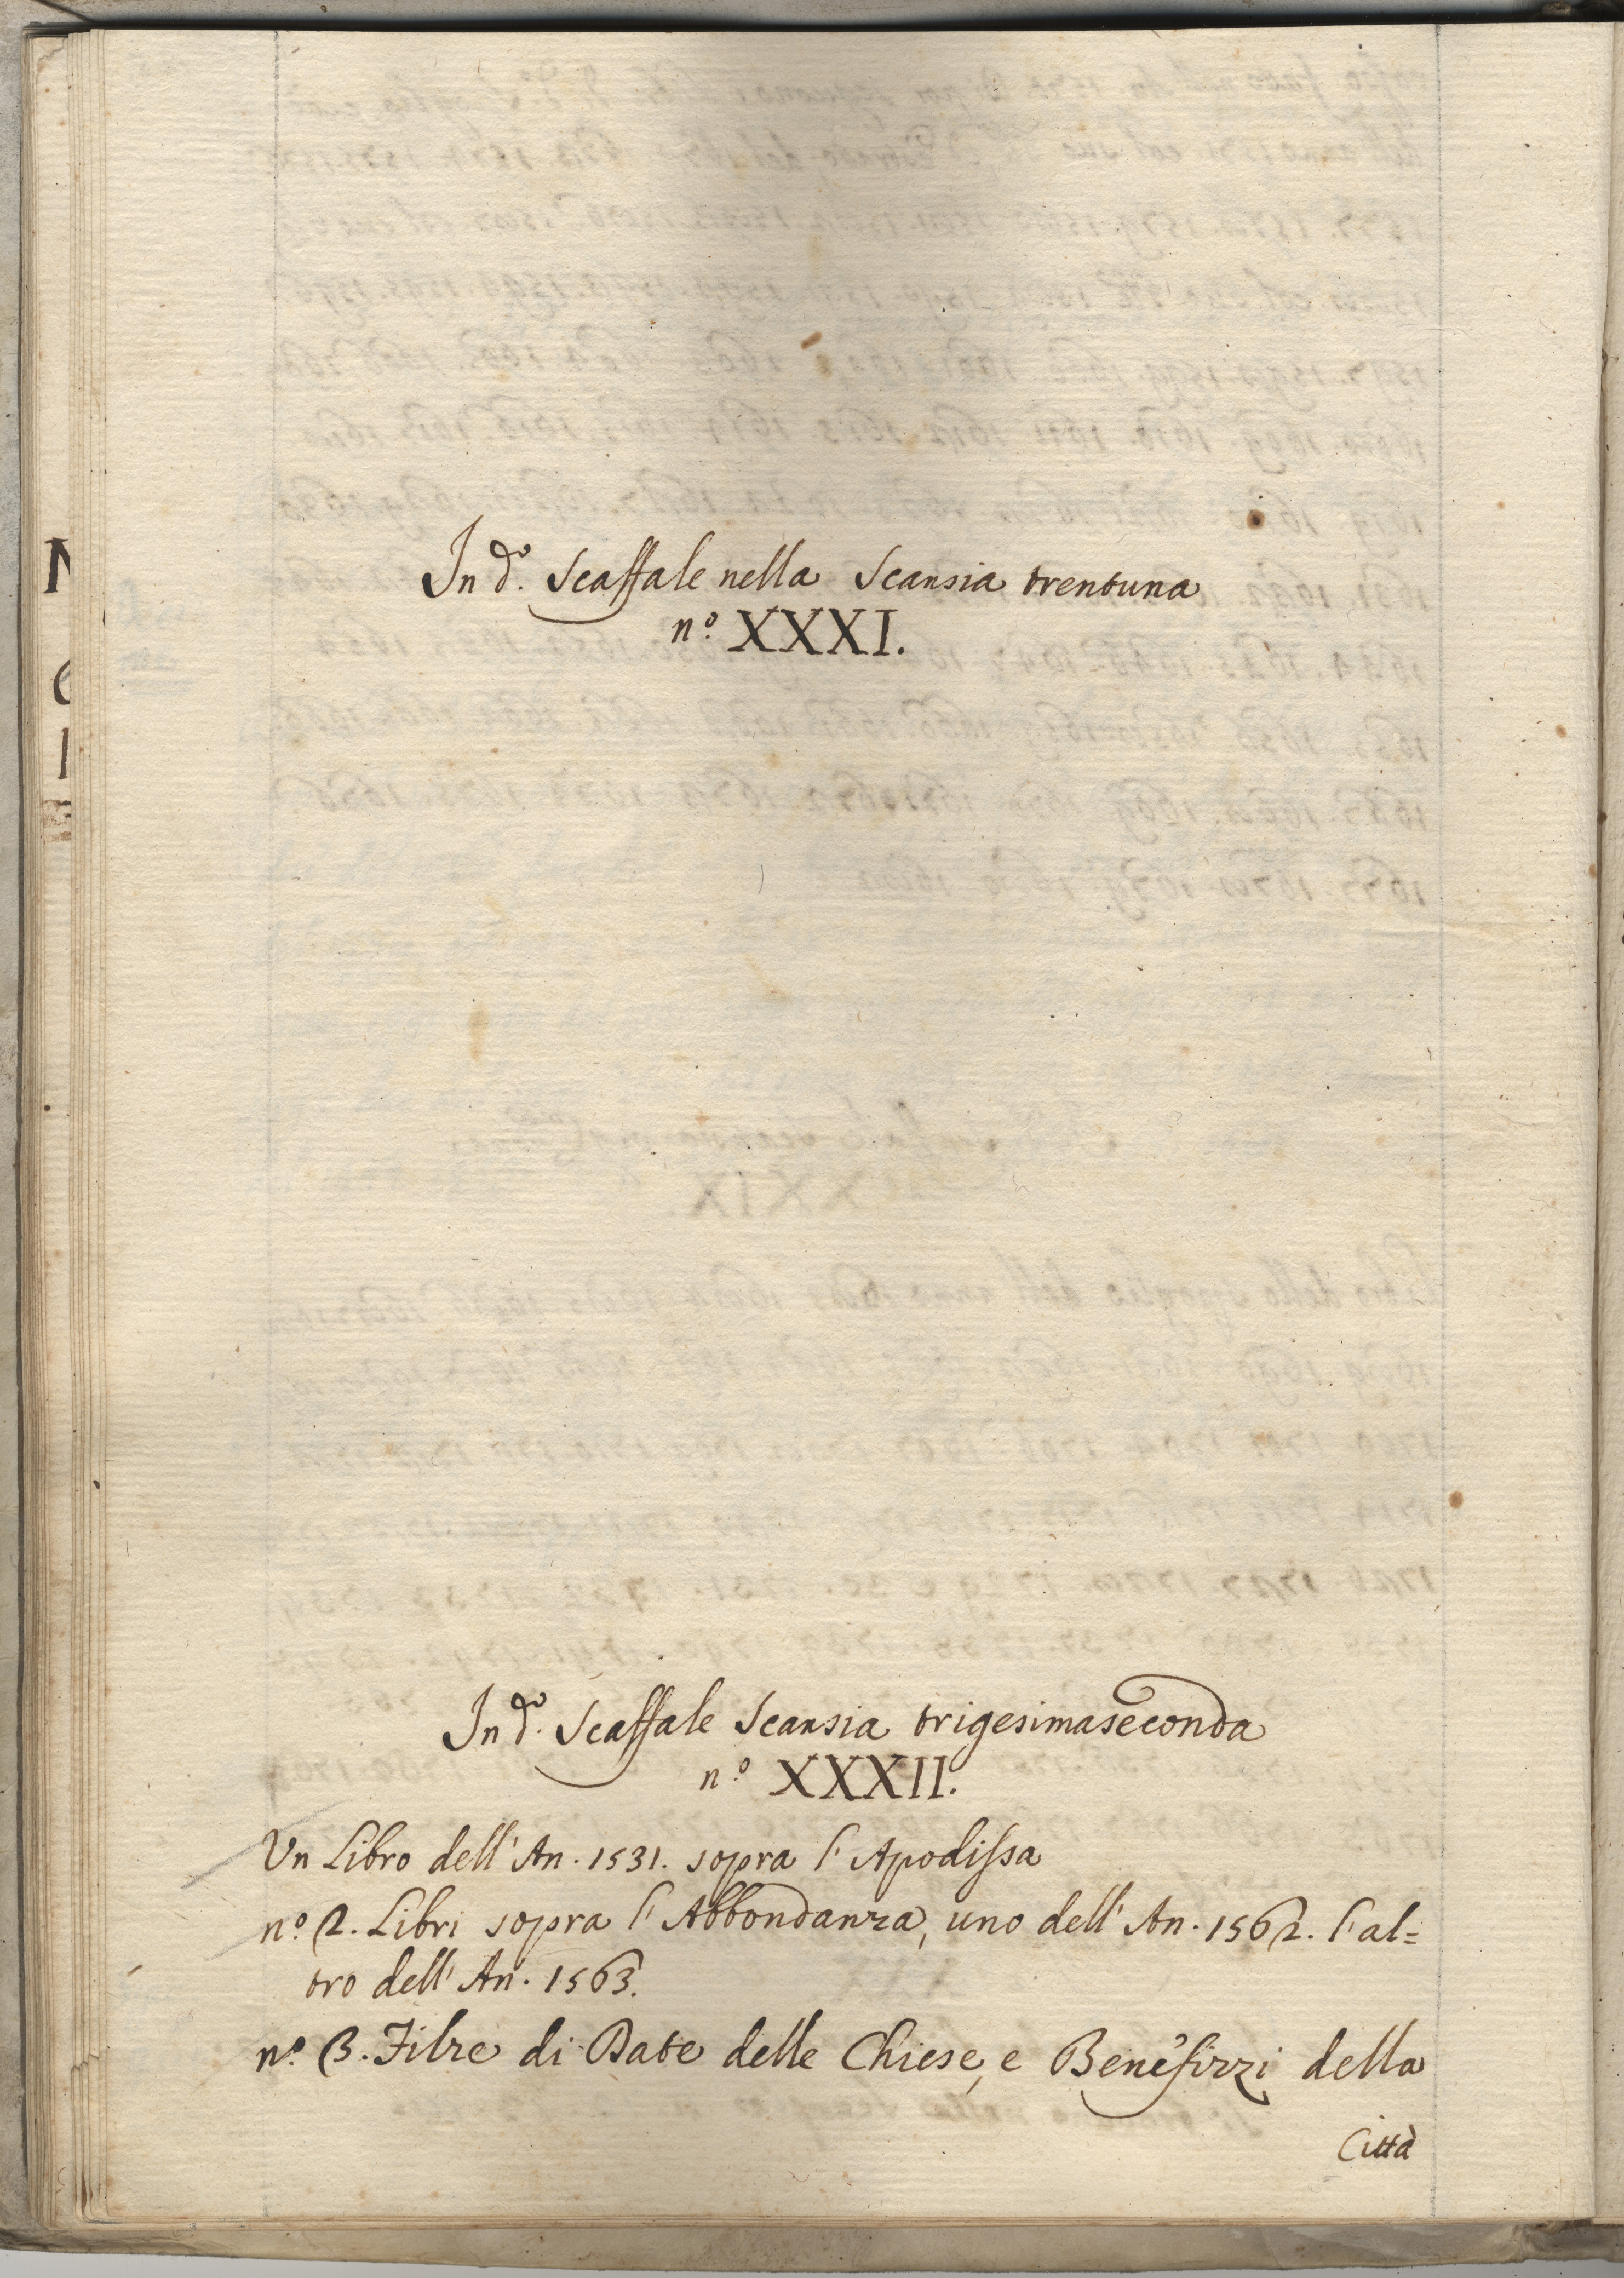 In d.º Scaffale nella Scansia trentuna
n.º XXXI.
In d.º Scaffale Scansia trigesimaseconda
n.º XXXII.
Un Libro dell' An. 1531. sopra l' Apodissa
n.º 2. Libri sopra l' Abbondanza, uno dell' An. 1562. l' al=
tro dell' An. 1563.
n.º 3. Filze di Date delle Chiese, e Benefizzi della
Città